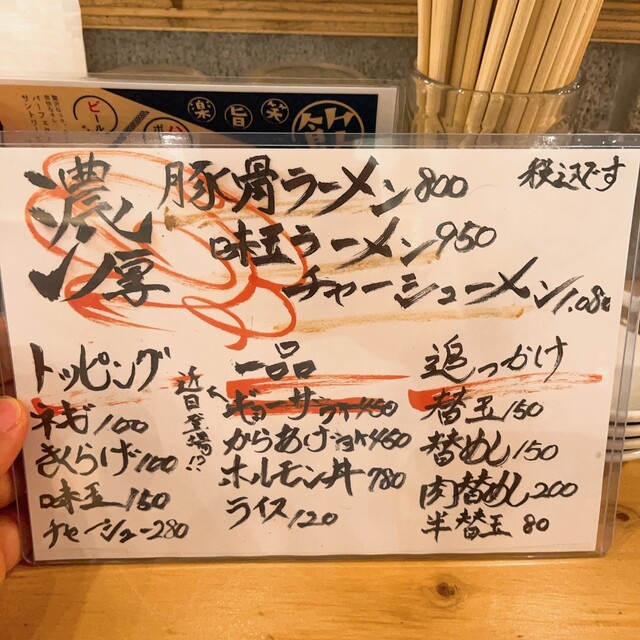 楽 旨 笑
ビール
税込です
濃厚
豚骨ラーメン 800
味玉ラーメン 950
チャーシューメン 1.080
トッピング
ネギ 100
きくらげ 100
味玉 150
チャーシュー 280
近日登場!?
一品
ギョーサ 5ヶ 450
からあげ 3ヶ 450
ホルモン丼 780
ライス 120
追っかけ
替玉 150
替めし 150
肉替めし 200
半替玉 80